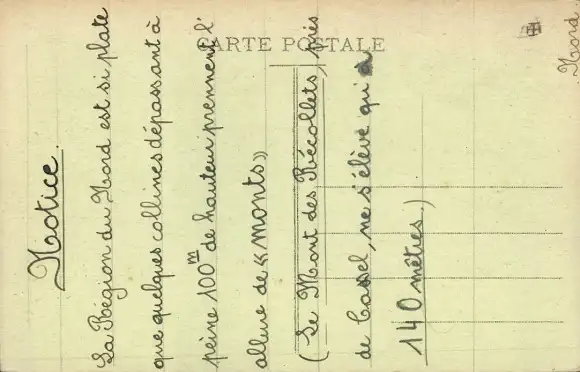 CARTE POSTALE
Nord.
Notice.
La Région du Nord est si plate
que quelques collines dépassant à
peine 100m de hauteur prennent l'
allure de « monts »
(Le Mont des Récollets, près
de Cassel, ne s'élève qu'à
140 mètres.)